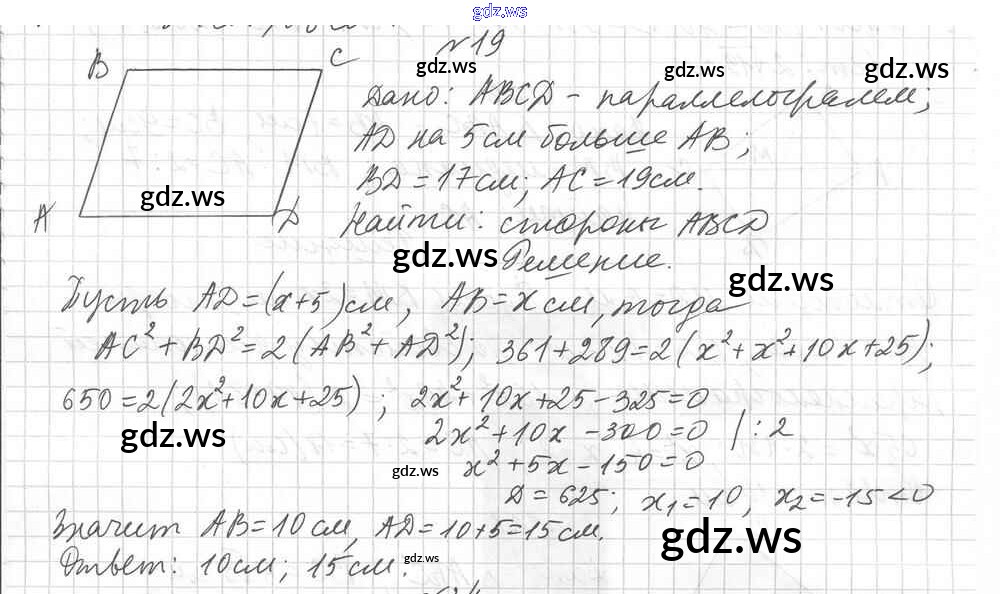 gdz.ws
№ 19
B C
gdz.ws gdz.ws gdz.ws
Дано: ABCD - параллелограмм;
AD на 5 см больше AB;
BD = 17 см; AC = 19 см.
gdz.ws
A D Найти: стороны ABCD
gdz.ws Решение.
gdz.ws
Пусть AD = (x+5) см, AB = x см, тогда
AC² + BD² = 2(AB² + AD²); 361 + 289 = 2(x² + x² + 10x + 25);
650 = 2(2x² + 10x + 25); 2x² + 10x + 25 - 325 = 0
gdz.ws 2x² + 10x - 300 = 0 | : 2
gdz.ws x² + 5x - 150 = 0
D = 625; x₁ = 10, x₂ = -15 < 0
Значит AB = 10 см, AD = 10 + 5 = 15 см.
gdz.ws
Ответ: 10 см; 15 см.
gdz.ws